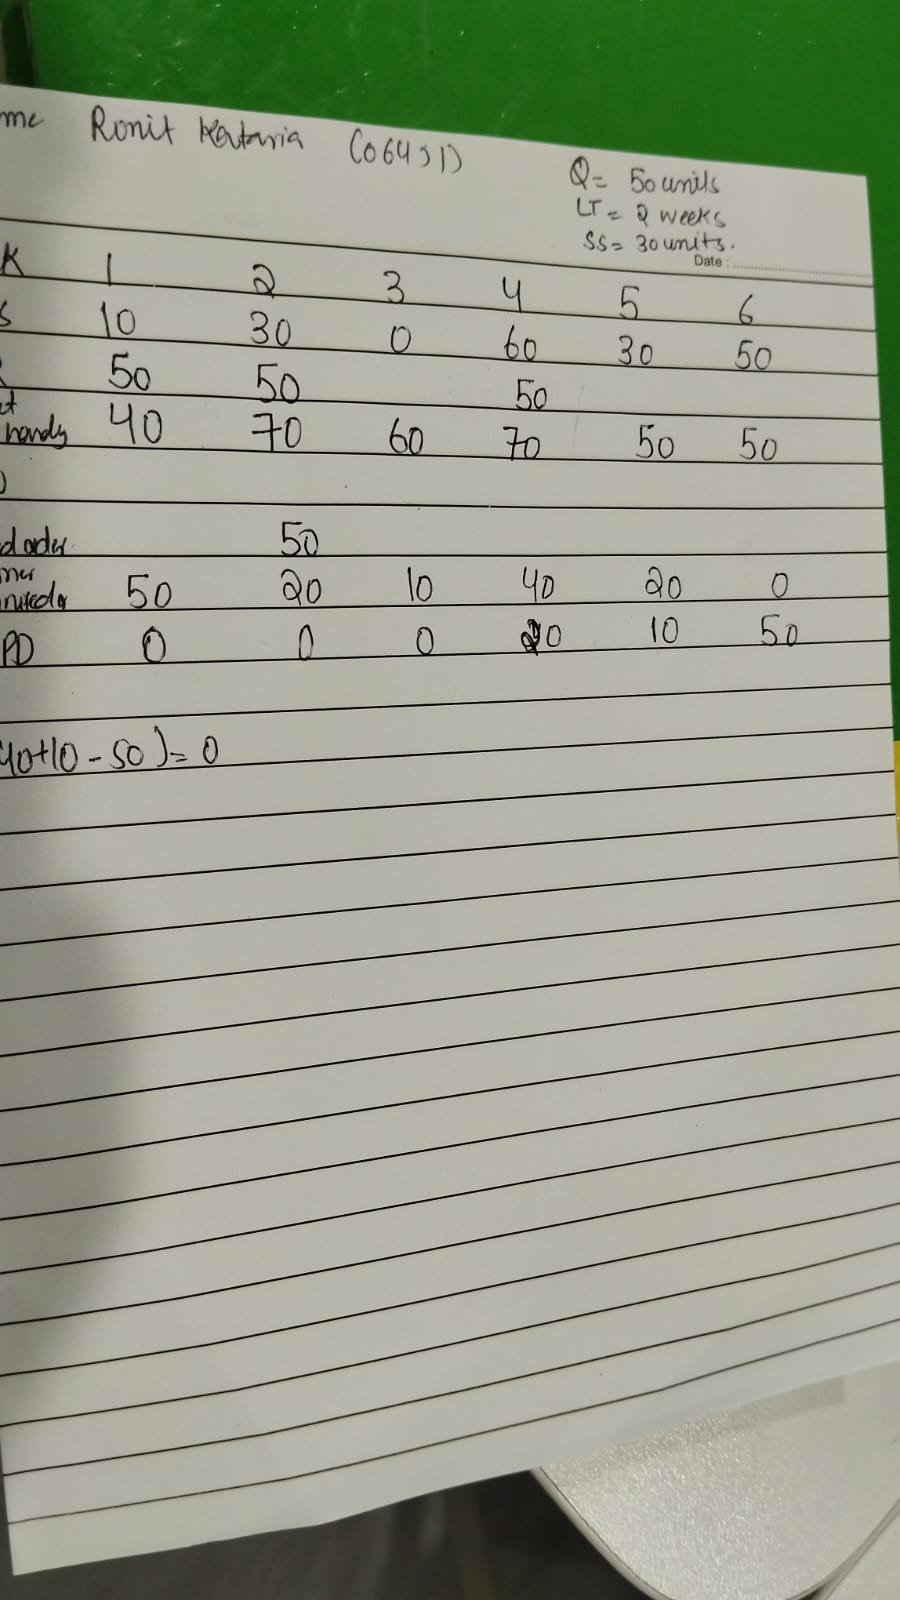 me Ronit Kataria (06451)
Q= 50 units
LT = 2 weeks
SS= 30 units.
Date :
K 1 2 3 4 5 6
S 10 30 0 60 30 50
50 50 50
handy 40 70 60 70 50 50
d order. 50
50 20 10 40 20 0
PD 0 0 0 20 10 50
40+10-50)=0